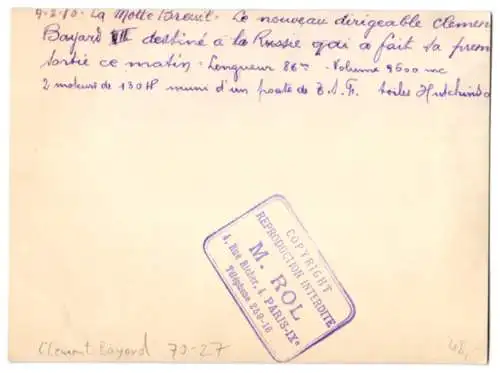 9-2-10 - La Motte Breuil - Le nouveau dirigeable Clemen
Bayard III destiné à la Russie qui a fait sa prem
sortie ce matin - Longueur 86m - Volume 9600 mc
2 moteurs de 130 HP muni d'un poste de T.S.F. toiles Hutchinso
COPYRIGHT
REPRODUCTION INTERDITE
M. ROL
4, Rue Richer, 4 PARIS-IXe
Téléphone 259-16
Clement Bayard 70-27
48,-